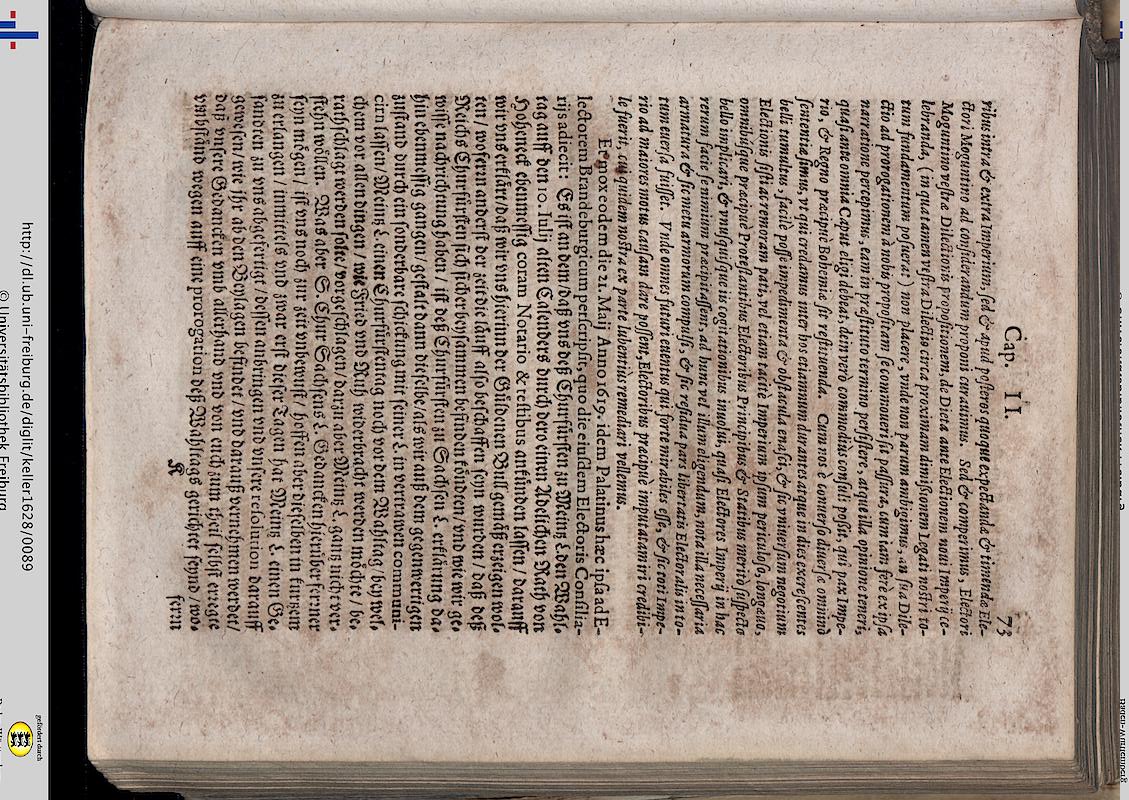 Cap. II. 73
ribus intra & extra Imperium, sed & apud posteros quoque expectanda & timenda Ele-
ctori Moguntino ad considerandum proponi curavimus. Sed & comperimus, Electori
Moguntino vestræ Dilectionis propositionem, de Diæta ante Electionem novi Imperij ce-
lebranda, (in qua tamen vestra Dilectio circa proximam dimissionem Legati nostri to-
tum fundamentum posuerat) non placere, unde non parum ambigimus, an sua Dile-
ctio ad prorogationem à nobis propositam se commoveri sit passura, cum jam ferè ex ipsa
narratione perceperimus, eam in præstituto termino persistere, atque illa opinione teneri,
quasi ante omnia Caput eligi debeat, dein verò commodius consuli possit, qui pax Impe-
rio, & Regno præcipuè Bohemiæ sit restituenda. Cum nos è converso diversæ omninò
sententiæ simus, ut qui credamus inter hos etiamnum durantes atque in dies excrescentes
belli tumultus, facilè posse impedimenta & obstacula enasci, & sic universum negotium
Electionis sisti ac remoram pati, vel etiam tacitè Imperium ipsum periculoso, longævo,
omnibusque præcipuè Protestantibus Electoribus Principibus & Statibus meritò suspecto
bello implicari, & unusquisque iis cogitationibus imbui, quasi Electores Imperij in hac
rerum facie se nimium præcipitassent, ad hunc vel illum eligendum, nota illa necessaria
armatura & sic metu armorum compulsi, & sic residua pars libertatis Electoralis in to-
tum eversa fuisset. Unde omnes futuri eventus qui forte mirabiles esse, & sic toti Impe-
rio ad majores motus caussam dare possent, Electoribus præcipuè imputaturi credibi-
le fuerit, cui quidem nostra ex parte lubentius remediari vellemus.
Et mox eodem die 21. Maij Anno 1619. idem Palatinus hæc ipsa ad E-
lectorem Brandeburgicum perscripsit, quo die ejusdem Electoris Consilia-
rijs adiecit: Es ist an dem/ daß uns deß Churfürsten zu Meintz L. den Wahl-
tag auff den 10. Iulij alten Calenders durch dero einen Adelichen Rath von
Hoheneck ebenmessig coram Notario & testibus ankünden lassen / darauff
wir uns erklärt/ daß wir uns hierinn der Güldenen Bull gemäß erzeigen wol-
ten / wofern anderst der zeit die läuff also beschaffen seyn wurden / daß deß
Reichs Churfürsten sich sicher beysammen befinden köndten/ und wie wir ge-
wisse nachrichtung haben / ist deß Churfürsten zu Sachsen L. erklärung da-
hin ebenmessig gangen/ gestalt dann dieselbe/ als wir auß dem gegenwertigen
zustand durch ein sonderbare schickung mit seiner L. in vertrawen communi-
cirn lassen/ Meintz L. einen Churfürstentag noch vor dem Wahltag/ bey wel-
chem vor allen dingen / wie Fried und Ruh widerbracht werden möchte / be-
rathschlagt werden solte/ vorgeschlagen/ darzu aber Meintz L. gantz nicht ver-
stehn wöllen. Was aber S. Chur Sachsens L. Gedancken hierüber ferrner
seyn mögen / ist uns noch zur zeit unbewust / hoffen aber dieselben in kurtzem
zu erlangen / immittels und zwar erst dieser Tagen hat Meintz L. einen Ge-
sandten zu uns abgefertigt / dessen anbringen und unsere resolution darauff
gewesen/ wie ihr ab den Beylagen befindet / und darauß vernehmen werdet/
daß unsere Gedancken und allerhand und von euch zum theil selbst erregte
umbständ wegen auff eine prorogation deß Wahltags gerichtet seynd / wo-
K fern
http://dl.ub.uni-freiburg.de/diglit/keller1628/0089
© Universitätsbibliothek Freiburg
gefördert durch